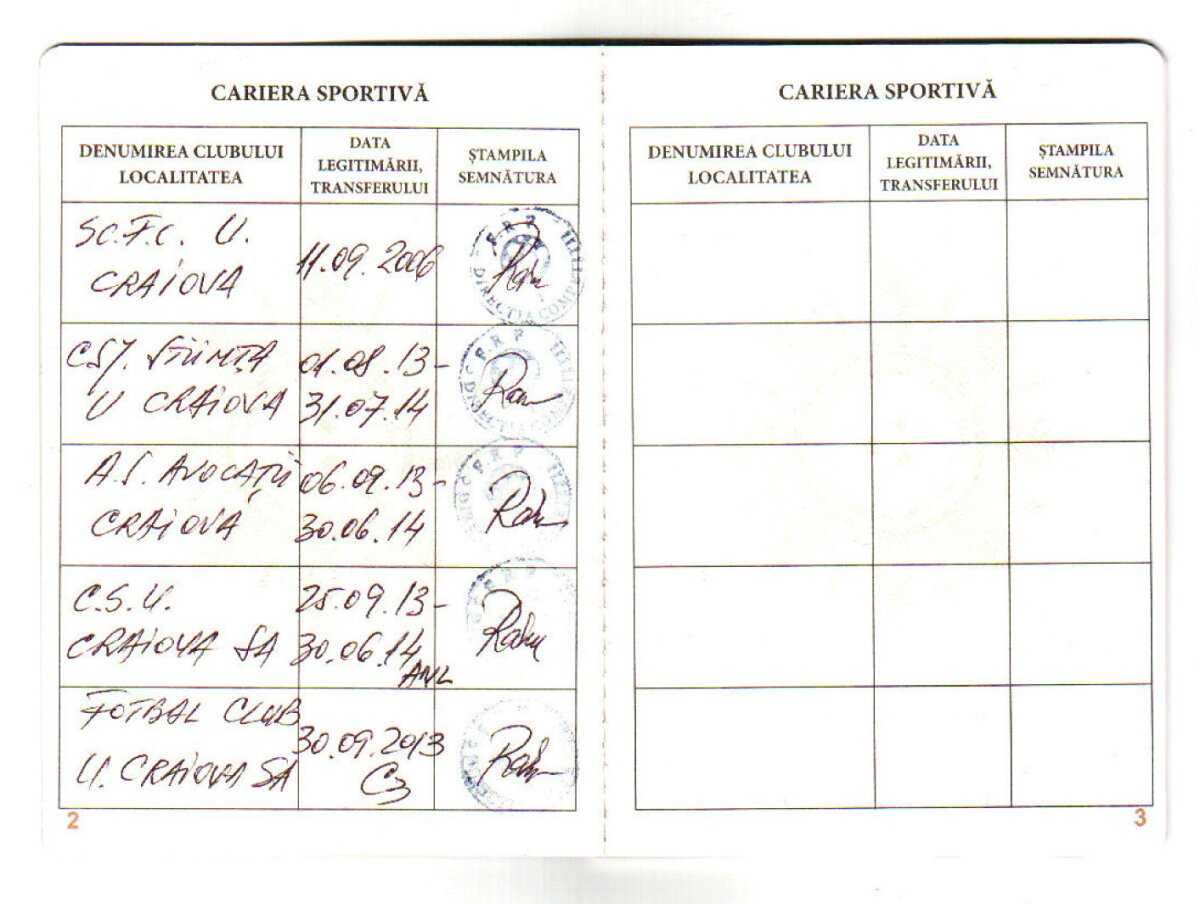 CARIERA SPORTIVĂ
DENUMIREA CLUBULUI
LOCALITATEA
DATA
LEGITIMĂRII,
TRANSFERULUI
ȘTAMPILA
SEMNĂTURA
SC.F.C. U.
CRAIOVA
11.09.2006
F R F
DIRECȚIA COMP
C.S.Ș. ȘTIINȚA
U CRAIOVA
01.08.13-
31.07.14
A.S. AVOCAȚII
CRAIOVA
06.09.13-
30.06.14
C.S.U.
CRAIOVA SA
25.09.13-
30.06.14
ANL
FOTBAL CLUB
U. CRAIOVA SA
30.09.2013
2
CARIERA SPORTIVĂ
DENUMIREA CLUBULUI
LOCALITATEA
DATA
LEGITIMĂRII,
TRANSFERULUI
ȘTAMPILA
SEMNĂTURA
3